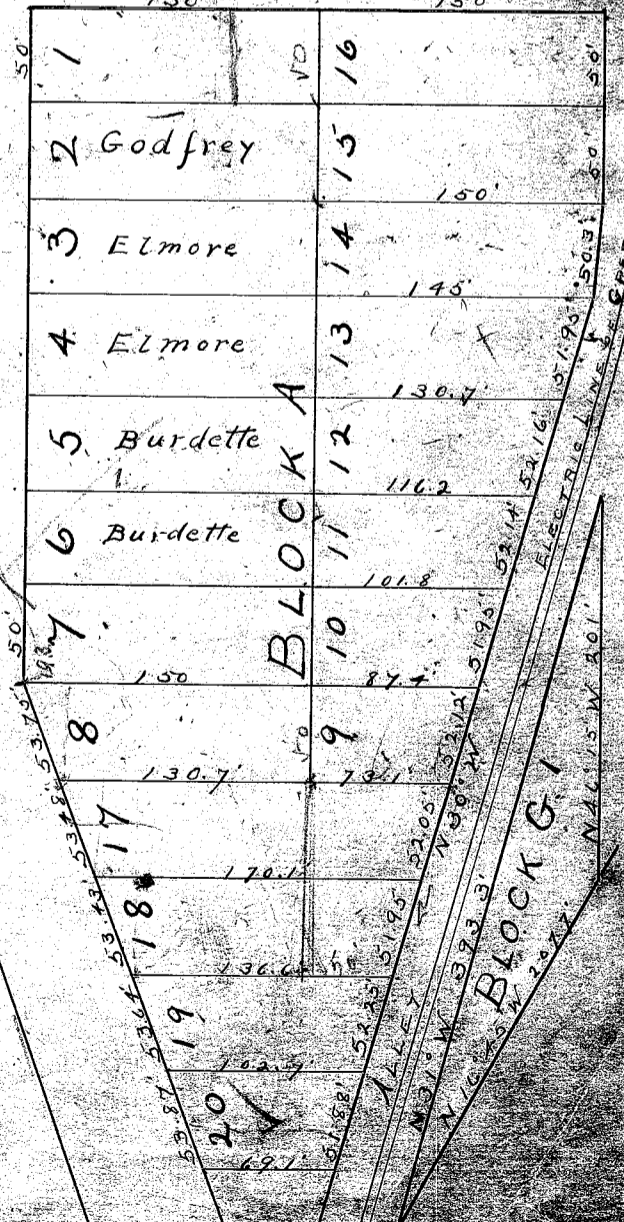 150' 150'
50' 1 50 16 50'
2 Godfrey 15 50'
150'
3 Elmore 14 50.3'
145'
4 Elmore 13 51.95'
130.7'
5 Burdette 12 52.16'
116.2
6 Burdette 11 52.14'
101.8
50' 7 10 51.95'
150 87.4'
BLOCK A
53.75' 8 9 52.12'
130.7' 73.1'
53.48' 17 52.05'
170.1'
53.43' 18 51.95'
136.6' 50'
53.64' 19 52.25'
102.9'
53.87' 20 51.88'
69.1'
N 30° W
ALLEY
ELECTRIC LINE OF
BLOCK G.1
N 31° W 393.3'
N 46° 15' W 201'
N 16° 45' W 207.7'